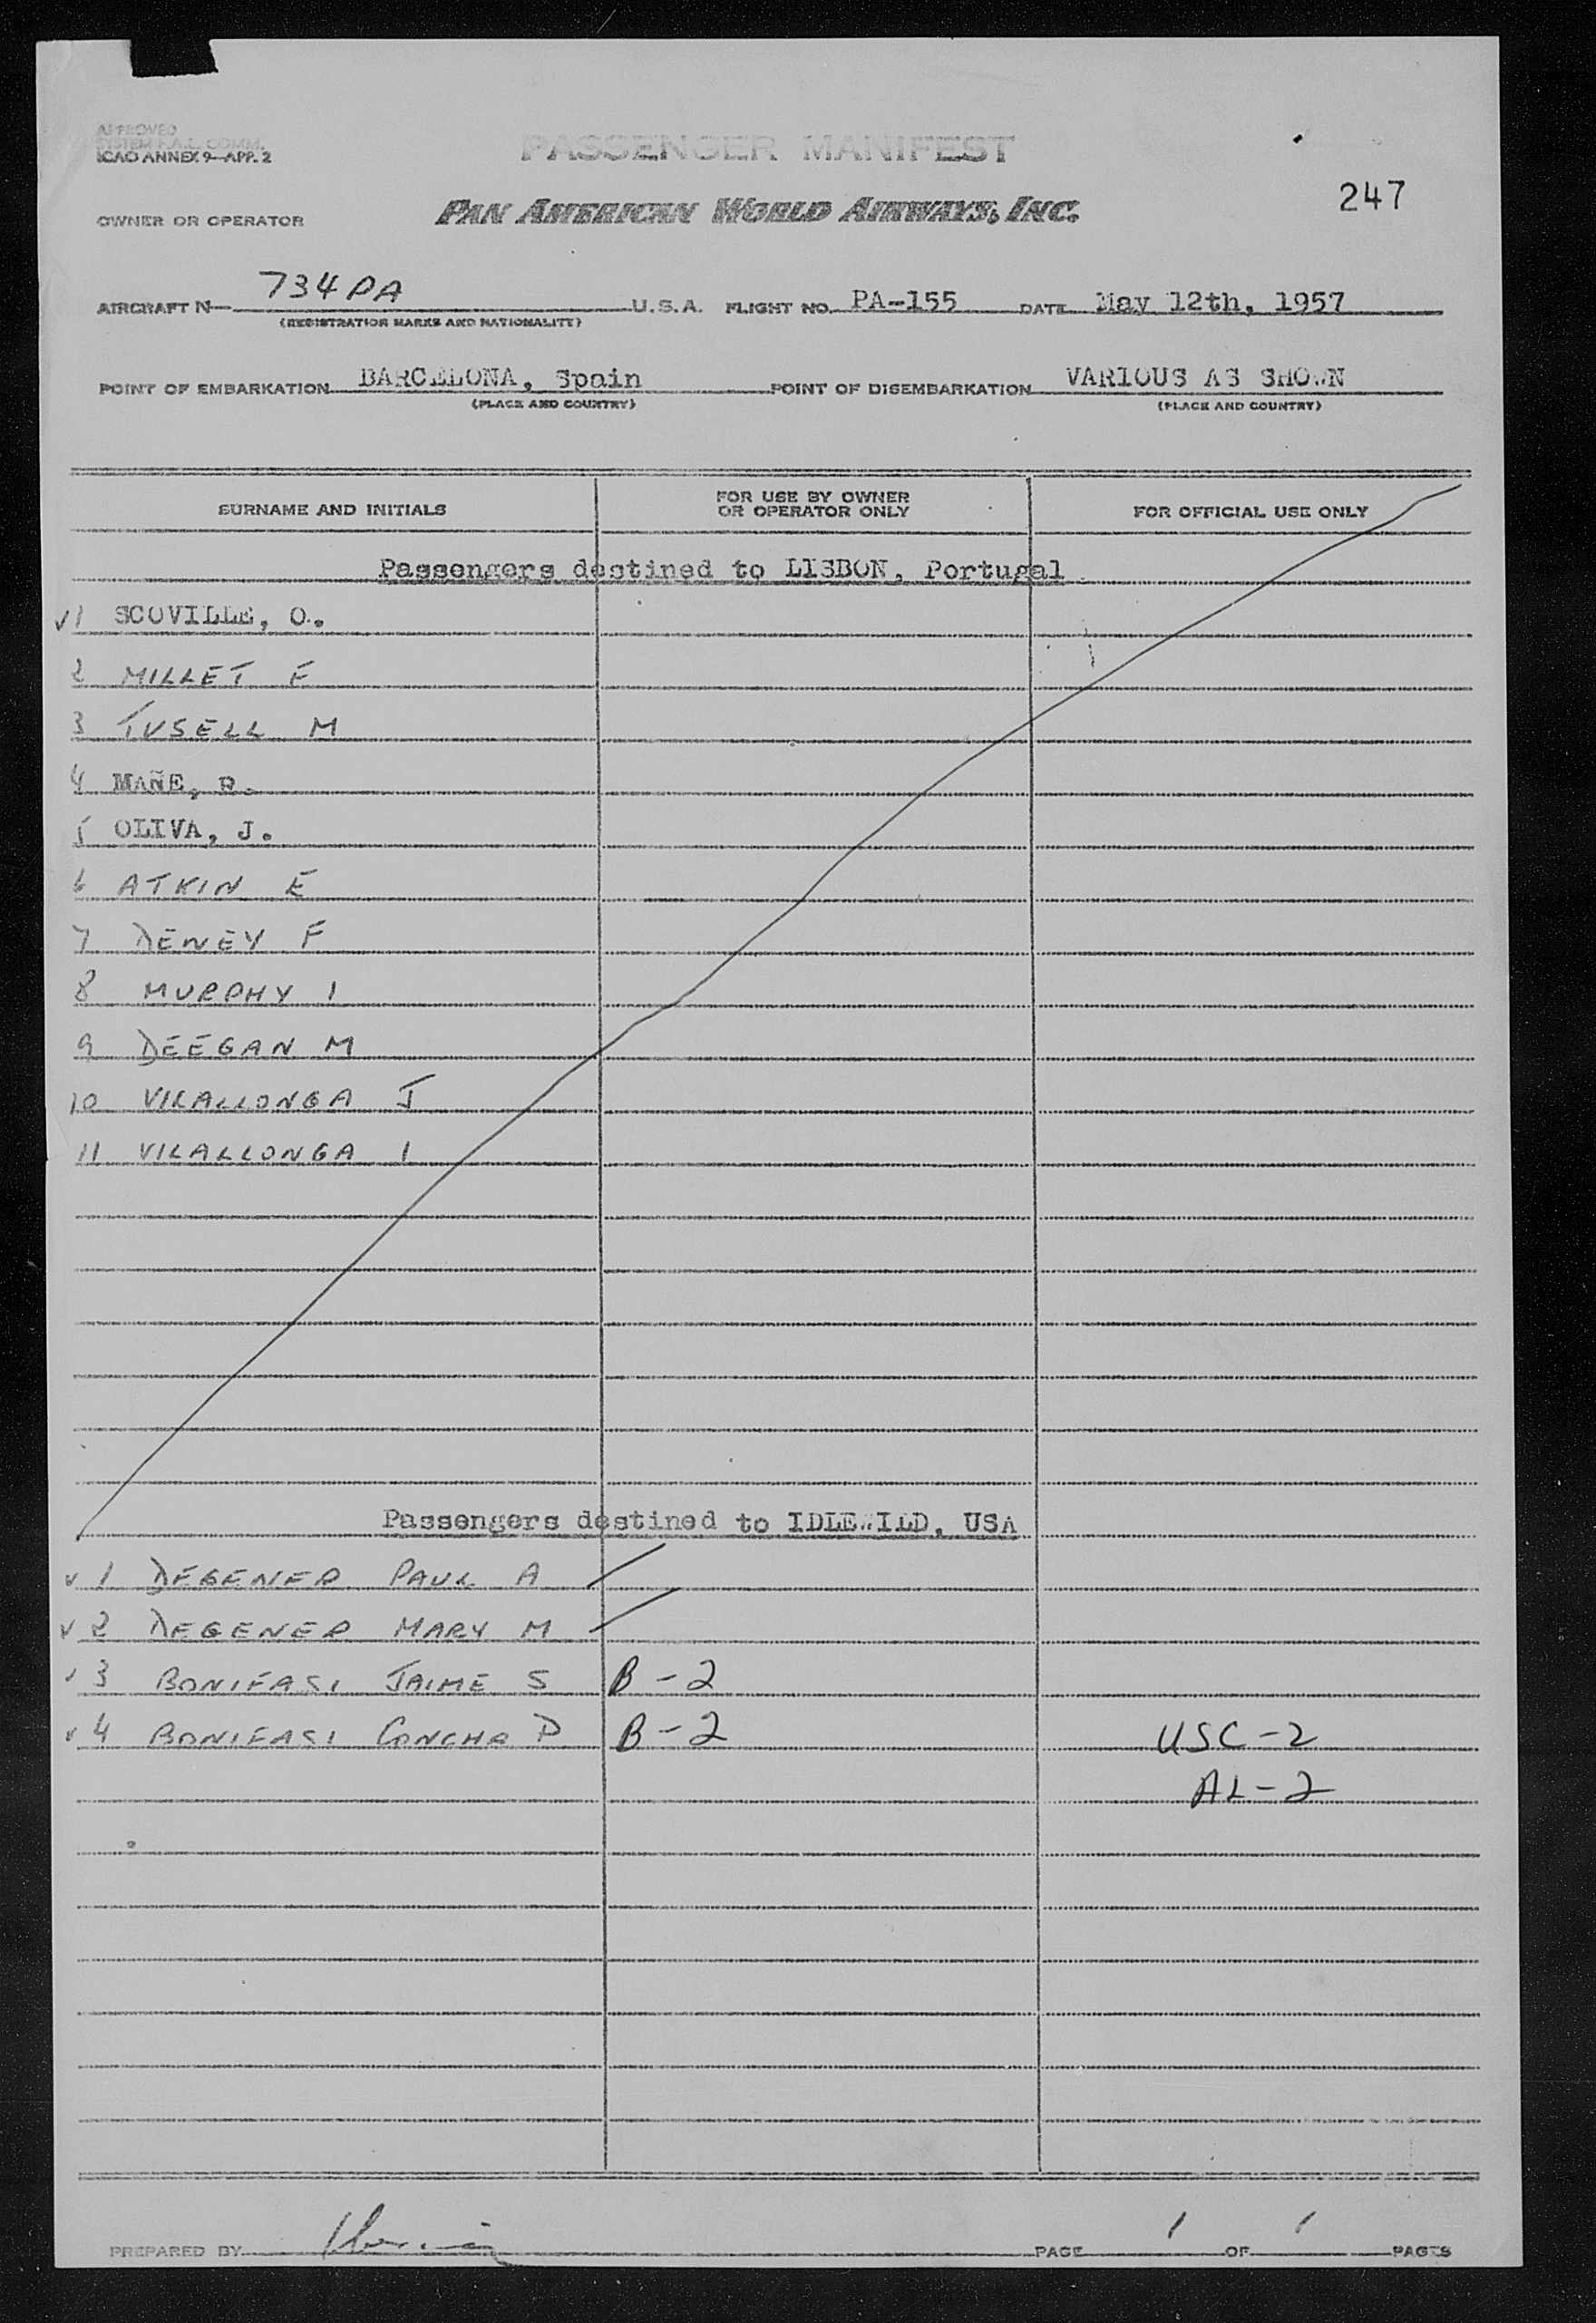 APPROVED
SYSTEM F.A.L. COMM.
ICAO ANNEX 9—APP. 2
PASSENGER MANIFEST
247
OWNER OR OPERATOR PAN AMERICAN WORLD AIRWAYS, INC.
AIRCRAFT N— 734PA U.S.A. FLIGHT NO. PA-155 DATE May 12th, 1957
(REGISTRATION MARKS AND NATIONALITY)
POINT OF EMBARKATION BARCELONA, Spain POINT OF DISEMBARKATION VARIOUS AS SHOWN
(PLACE AND COUNTRY) (PLACE AND COUNTRY)
SURNAME AND INITIALS FOR USE BY OWNER OR OPERATOR ONLY FOR OFFICIAL USE ONLY
Passengers destined to LISBON, Portugal
✓ 1 SCOVILLE, O.
2 MILLET F
3 TUSELL M
4 MAÑE, R.
5 OLIVA, J.
6 ATKIN E
7 DENEY F
8 MURPHY I
9 DEEGAN M
10 VILALLONGA J
11 VILALLONGA I
Passengers destined to IDLEWILD, USA
✓ 1 DEGENER PAUL A
✓ 2 DEGENER MARY M
✓ 3 BONIFASI JAIME S B-2
✓ 4 BONIFASI CONCHA P B-2 USC-2
AL-2
PREPARED BY PAGE 1 OF 1 PAGES